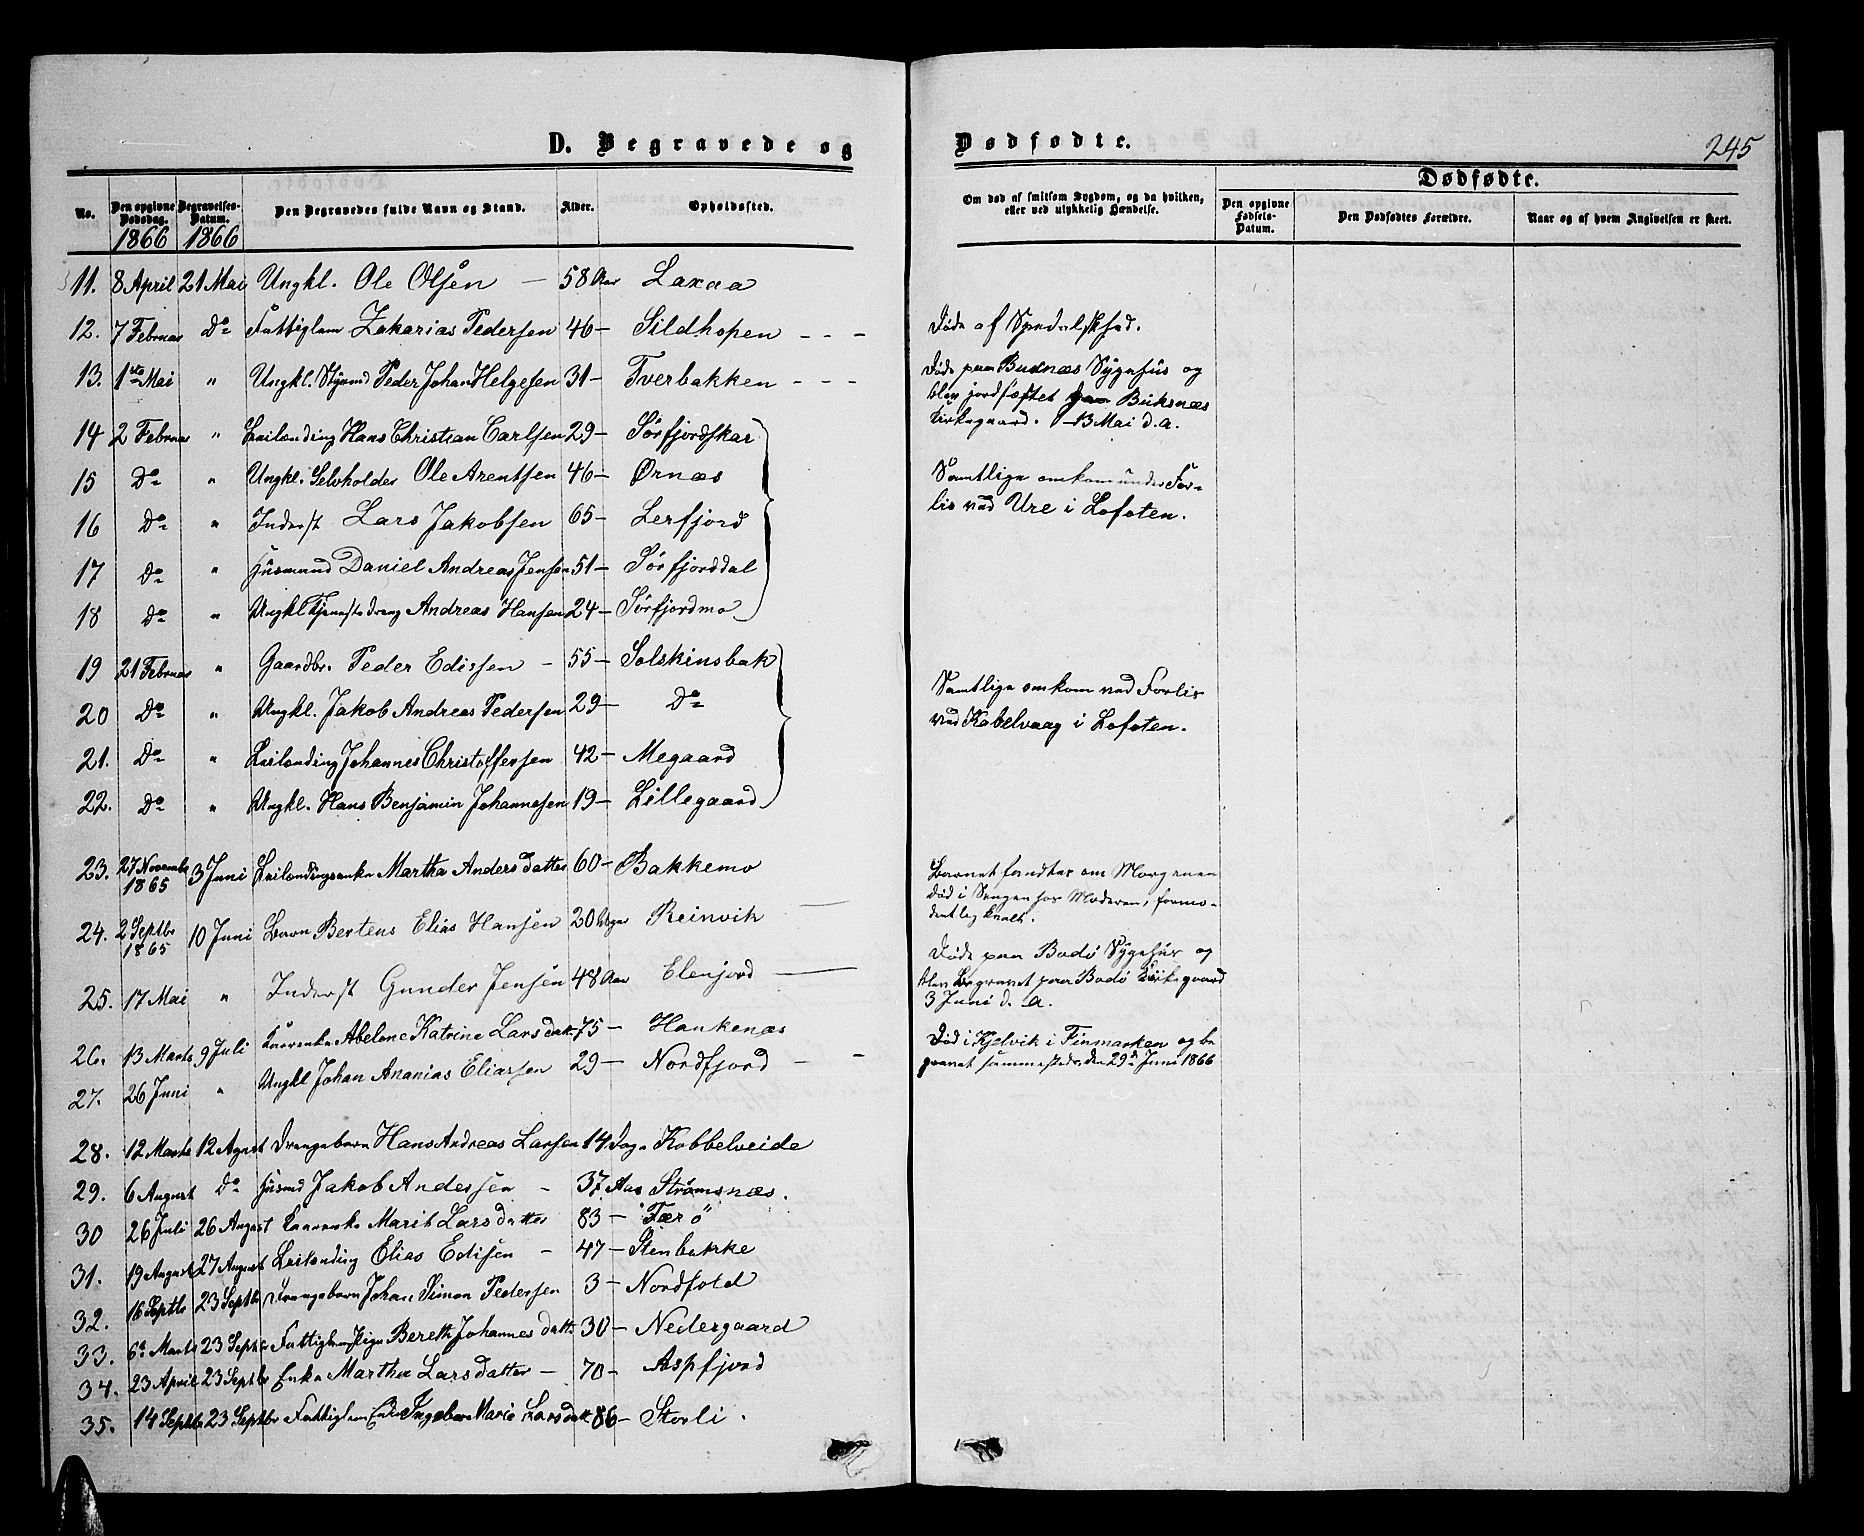 D. Begravede og
Dødfødte.
245
No.
Den opgivne Dødsdag.
1866
Begravelses-Datum.
1866
Den Begravedes fulde Navn og Stand.
Alder.
Opholdssted.
Om død af smitsom Sygdom, og da hvilken, eller ved ulykkelig Hændelse.
Dødfødte.
Den opgivne Fødsels-Datum.
Den Dødfødtes Forældre.
Naar og af hvem Angivelsen er skeet.
11. 8 April 21 Mai Ungkl. Ole Olsen — 58 Aar Laxaa
12. 7 Februar Do Fattiglem Zakarias Pedersen 46 — Sildhopen - - - Døde af Spedalskhed.
13. 1ste Mai " Ungkl. Styrmd Peder Johan Helgesen 31 — Tverbakken - - - Døde paa Buxnæs Sygehus og
blev jordfæstet paa Buksnæs
Kirkegaard. 13 Mai d. a.
14 2 Februar " Leilending Hans Christian Carlsen 29 — Sørfjordskar
15 Do " Ungkl. Selvholder Ole Arentsen 46 — Ørnæs Samtlige omkom under For-
16 Do " Inderst Lars Jakobsen 65 — Lerfjord lis ved Ure i Lofoten.
17 Do " Husmand Daniel Andreas Jensen 51 — Sørfjorddal
18 Do " Ungkl Tjenestedreng Andreas Hansen 24 — Sørfjordmo
19 21 Februar " Gaardbr. Peder Edissen — 55 — Solskinsbak
20 Do " Ungkl. Jakob Andreas Pedersen 29 — Do Samtlige omkom ved Forlis
ved Kabelvaag i Lofoten.
21. Do " Leilending Johannes Christoffersen 42 — Megaard
22. Do " Ungkl. Hans Benjamin Johannesen 19 — Lillegaard
23. 27 Novembr 1865 3 Juni Leilendingsenke Martha Andersdatter 60 — Bakkemo
24. 2 Septbr 1865 10 Juni Barn Bertens Elias Hansen 20 Uger Reinvik — Barnet fandtes om Morgenen
død i Sengen hos Moderen, formo-
dentlig kvalt.
25. 17 Mai " Inderst Gunder Jensen 48 Aar Elenjord — Døde paa Bodø Sygehus og
blev Begravet paa Bodø Kirkegaard
3 Juni d. a.
26. 13 Marts 9 Juli Kaarenke Abelone Katrine Larsdatt. 75 — Haukenæs
27. 26 Juni " Ungkl Johan Ananias Eliassen 29 — Nordfjord - - Død i Kjelvik i Finmarken og be
gravet sammesteds den 29de Juni 1866
28. 12 Marts 12 Agust Drengebarn Hans Andreas Larsen 14 Dage Kobbelveide
29. 6 August Do Husmd Jakob Andersen - 37 Aar Strømsnæs.
30 26 Juli 26 August Kaarenke Marit Larsdatter 83 — Færø
31. 19 August 27 August Leilending Elias Edisen — 47 — Stenbakke
32. 16 Septbr 23 Septbr Drengebarn Johan Simon Pedersen 3 — Nordfold
33. 6te Marts 23 Septbr Fattiglem Pige Bereth Johannesdatt. 30 — Nedergaard
34. 23 April 23 Septbr Enke Martha Larsdatter — 70 — Aspfjord
35. 14 Septbr 23 Septbr Fattiglem Enke Ingebor Marie Larsdatt 86 — Storli.